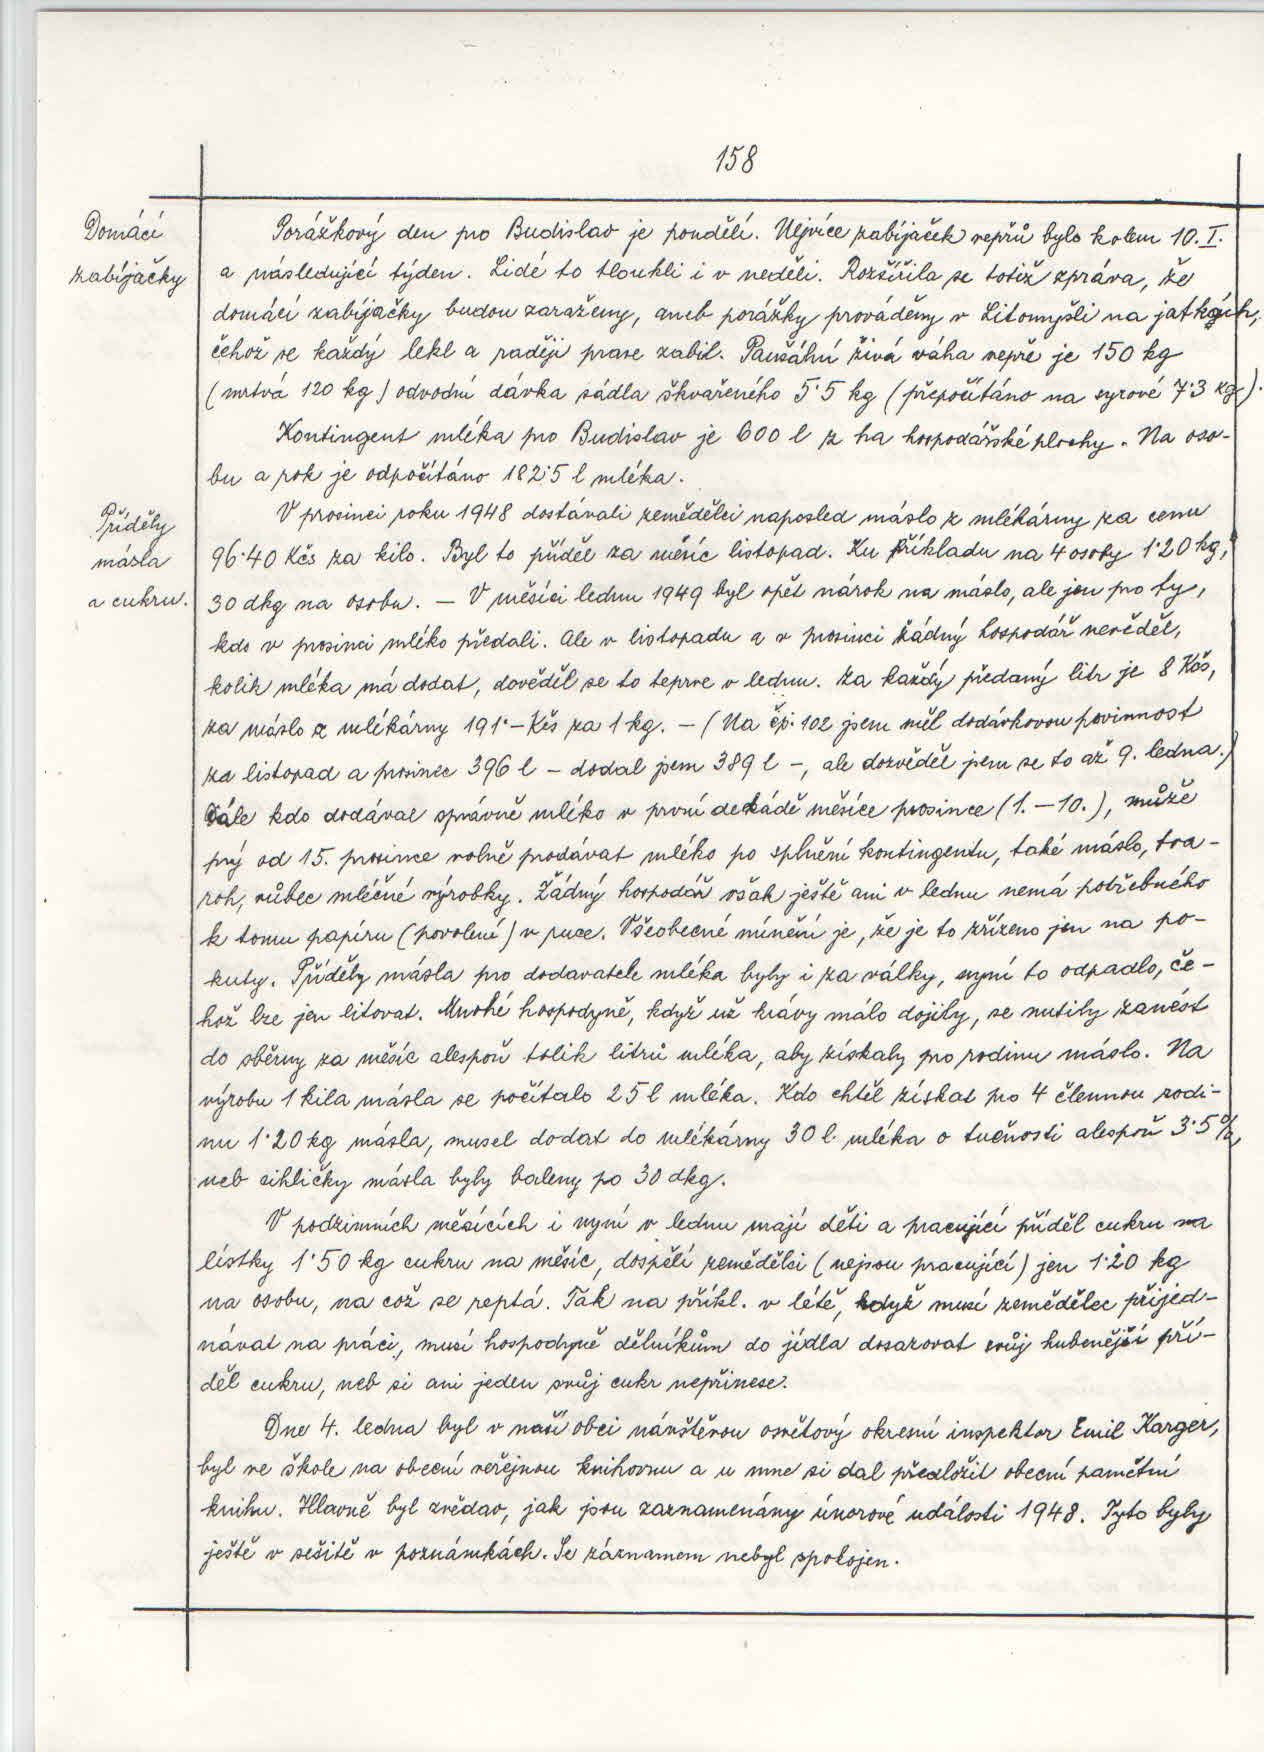 158
Domácí
zabíjačky
Porážkový den pro Budislav je pondělí. Nejvíce zabíjaček vepřů bylo kolem 10. I.
a následující týden. Lidé to tloukli i v neděli. Rozšířila se totiž zpráva, že
domácí zabíjačky budou zaraženy, aneb porážky prováděny v Litomyšli na jatkách,
čehož se každý lekl a raději prase zabil. Paušální živá váha vepře je 150 kg
(mrtvá 120 kg) odvodní dávka sádla škvařeného 5·5 kg (přepočítáno na syrové 7·3 kg).
Kontingent mléka pro Budislav je 600 l z ha hospodářské plochy. Na oso-
bu a rok je odpočítáno 182·5 l mléka.
Příděly
másla
a cukru.
V prosinci roku 1948 dostávali zemědělci naposled máslo z mlékárny za cenu
96·40 Kčs za kilo. Byl to příděl za měsíc listopad. Ku příkladu na 4 osoby 1·20 kg,
30 dkg na osobu. — V měsíci lednu 1949 byl opět nárok na máslo, ale jen pro ty,
kdo v prosinci mléko předali. Ale v listopadu a v prosinci žádný hospodář nevěděl,
kolik mléka má dodat, dověděl se to teprve v lednu. Za každý předaný litr je 8 Kčs,
za máslo z mlékárny 191·— Kčs za 1 kg. — (Na čp. 102 jsem měl dodávkovou povinnost
za listopad a prosinec 396 l — dodal jsem 389 l —, ale dozvěděl jsem se to až 9. ledna.)
Dále kdo dodával správně mléko v první dekádě měsíce prosince (1. — 10.), může
prý od 15. prosince volně prodávat mléko po splnění kontingentu, také máslo, tva-
roh, vůbec mléčné výrobky. Žádný hospodář však ještě ani v lednu nemá potřebného
k tomu papíru (povolení) v ruce. Všeobecné mínění je, že je to zřízeno jen na po-
kuty. Příděly másla pro dodavatele mléka byly i za války, nyní to odpadlo, če-
hož lze jen litovat. Mnohé hospodyně, když už krávy málo dojily, se nutily zanést
do sběrny za měsíc alespoň tolik litrů mléka, aby získaly pro rodinu máslo. Na
výrobu 1 kila másla se počítalo 25 l mléka. Kdo chtěl získat pro 4 člennou rodi-
nu 1·20 kg másla, musel dodat do mlékárny 30 l. mléka o tučnosti alespoň 3·5 %,
neb cihličky másla byly baleny po 30 dkg.
V podzimních měsících i nyní v lednu mají děti a pracující příděl cukru na
lístky 1·50 kg cukru na měsíc, dospělí zemědělci (nejsou pracující) jen 1·20 kg
na osobu, na což se reptá. Tak na příkl. v létě, když musí zemědělec přijed-
návat na práci, musí hospodyně dělníkům do jídla dosazovat svůj hubenější pří-
děl cukru, neb si ani jeden svůj cukr nepřinese.
Dne 4. ledna byl v naší obci návštěvou osvětový okresní inspektor Emil Karger,
byl ve škole na obecní veřejnou knihovnu a u mne si dal předložit obecní pamětní
knihu. Hlavně byl zvědav, jak jsou zaznamenány únorové události 1948. Tyto byly
ještě v sešitě v poznámkách. Se záznamem nebyl spokojen.